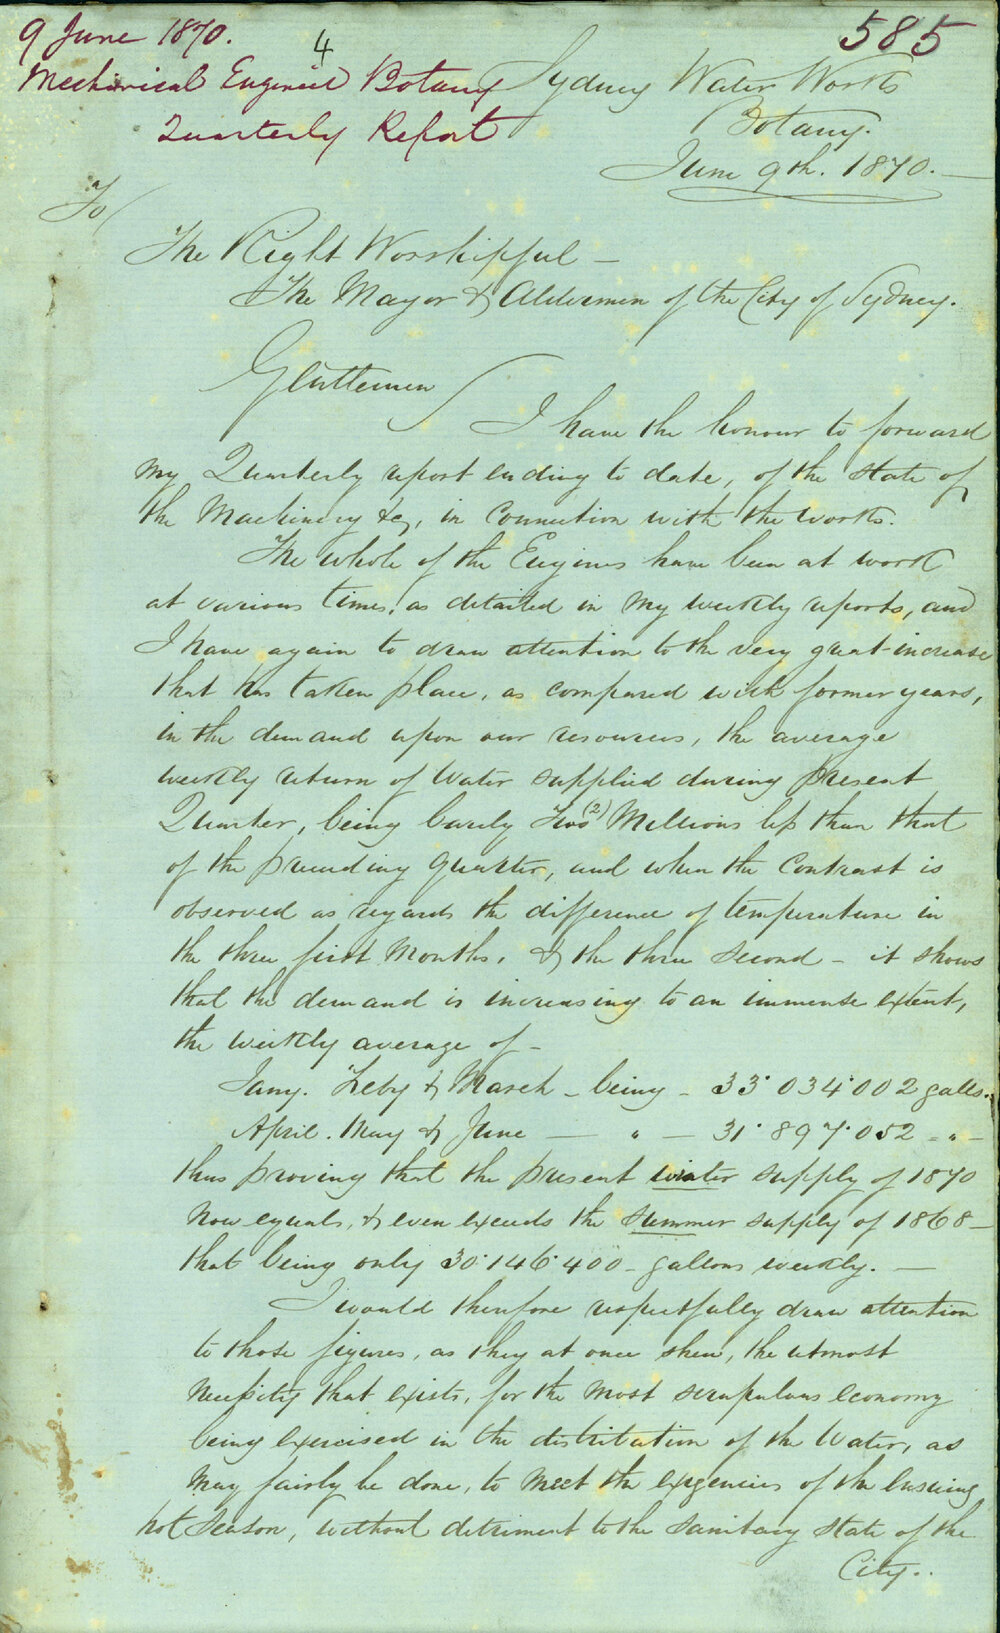 9 June 1870.
4
585
Mechanical Engineer Botany
Quarterly Report
Sydney Water Works
Botany.
June 9th. 1870.—
To/
The Right Worshipful —
The Mayor & Aldermen of the City of Sydney.
Gentlemen
I have the honour to forward
my Quarterly report ending to date, of the state of
the Machinery &c, in connection with the works.
The whole of the Engines have been at work
at various times, as detailed in my weekly reports, and
I have again to draw attention to the very great increase
that has taken place, as compared with former years,
in the demand upon our resources, the average
weekly return of Water supplied during present
Quarter, being barely Two (2) Millions less than that
of the preceding quarter, and when the contrast is
observed as regards the difference of temperature in
the three first Months, & the three second — it shows
that the demand is increasing to an immense extent,
the weekly average of —
Jany. Feby & March — being — 33·034·002 galls.
April. May & June — " — 31·897·052 — " —
thus proving that the present winter supply of 1870
now equals, & even exceeds the summer supply of 1868 —
that being only 30·146·400 — gallons weekly. —
I would therefore respectfully draw attention
to those figures, as they at once shew, the utmost
necessity that exists, for the most scrupulous economy
being exercised in the distribution of the Water, as
may fairly be done, to meet the exigencies of the ensuing
hot season, without detriment to the sanitary state of the
City..